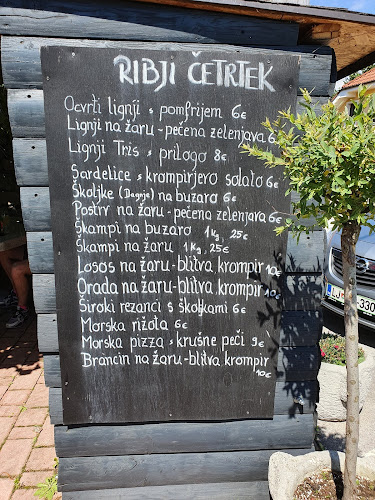 RIBJI ČETRTEK
Ocvrti lignji s pomfrijem 6€
Lignji na žaru - pečena zelenjava 6
Lignji Tris s prilogo 8€
Sardelice s krompirjevo solato 6€
Školjke (Dagnje) na buzaro 6€
Postrv na žaru - pečena zelenjava 6€
Škampi na buzaro 1kg, 25€
Škampi na žaru 1kg, 25€
Losos na žaru - blitva krompir 10€
Orada na žaru - blitva krompir 10€
Široki rezanci s školjkami 6€
Morska rižota 6€
Morska pizza s krušne peči 9€
Brancin na žaru - blitva krompir 10€
LJ
330